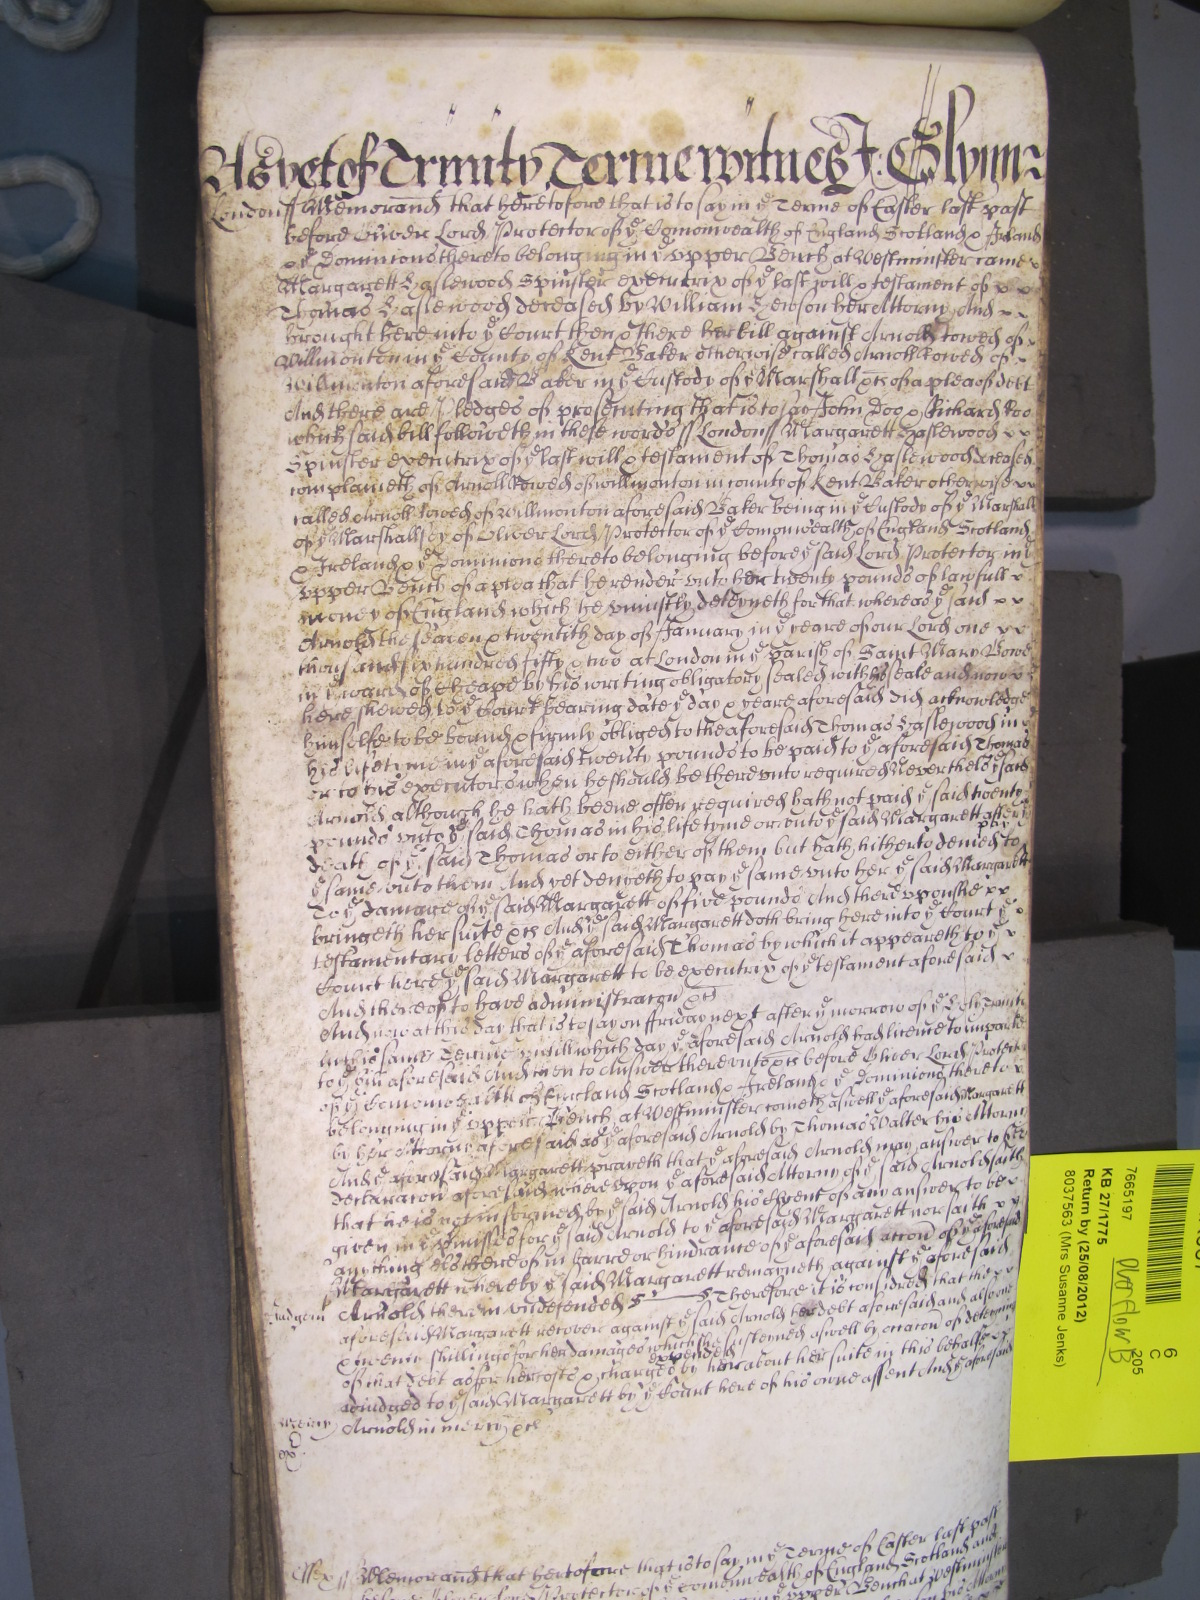 As yet of Trinity Terme witnes J: Glynn
London ss Memorand that heretofore that is to say in ye Terme of Easter last past
before Oliver Lord Protector of ye Comonwealth of England Scotland & Ireland
& ye Dominions thereto belonging in ye upper Bench at Westminster came
Margarett Haslewood Spinster executrix of ye last will & testament of
Thomas Haslewood deceased by William Hewson her Attorny And
brought here into ye Court then & there her bill against Arnold Rowed of
Willmonton in ye County of Kent Baker otherwise called Arnold Rowed of
Willmonton aforesaid Baker in ye Custody of ye Marshall &c of a plea of debt
And there are Pledges of prosecuting that is to say John Doo & Richard Roo
which said bill followeth in these words ss London ss Margarett Haslewood
Spinster executrix of ye last will & testament of Thomas Haslewood deceased
complaineth of Arnold Rowed of Willmonton in county of Kent Baker otherwise
called Arnold Rowed of Willmonton aforesaid Baker being in ye Custody of ye Marshall
of ye Marshallsey of Oliver Lord Protector of ye Comonwealth of England Scotland
& Ireland & ye Dominions thereto belonging before ye said Lord Protector in ye
upper Bench of a plea that he render unto her twenty pounds of lawfull
money of England which he uniustly deteyneth for that whereas ye said
Arnold the seaven & twentith day of January in ye yeare of our Lord one
thousand six hundred fifty & two at London in ye parish of Saint Mary Bowe
in ye ward of Cheape by his writing obligatory sealed with his seale and now
here shewed to ye Court bearing date ye day & yeare aforesaid did acknowledge
himselfe to be bound & firmly obliged to the aforesaid Thomas Haslewood in
his life tyme in ye aforesaid twenty pounds to be paid to ye aforesaid Thomas
or to his executors when he should be thereunto required Neverthels ye said
Arnold although he hath beene often required hath not paid ye said twenty
pounds unto ye said Thomas in his life tyme or unto ye said Margarett after ye
death of ye said Thomas or to either of them but hath hitherto denied to pay
ye same unto them And yet denyeth to pay ye same unto her ye said Margarett
To ye damage of ye said Margarett of five pounds And thereupon she
bringeth her suite &c And ye said Margarett doth bring here into ye Court ye
testamentary letters of ye aforesaid Thomas by which it appeareth to ye
Court here ye said Margarett to be executrix of ye testament aforesaid
And thereof to have administracon &c
And now at this day that is to say on ffriday next after ye morrow of ye Holy Trinity
in this same Terme untill which day ye aforesaid Arnold had licence to imparle
to ye bill aforesaid And then to Answer thereunto &c before Oliver Lord Protector
of ye Comonwealth of England Scotland & Ireland & ye Dominions thereto
belonging in ye upper Bench at Westminster cometh aswell ye aforesaid Margarett
by her Attorny aforesaid as ye aforesaid Arnold by Thomas Walter his Attorny
And ye aforesaid Margarett prayeth that ye aforesaid Arnold may answer to her
declaracon aforesaid whereupon ye aforesaid Attorny of ye said Arnold saith
that he is not informed by ye said Arnold his Clyent of any answer to be
given in ye premisses for ye said Arnold to ye aforesaid Margarett nor saith
anything els thereof in barre or hindrance of ye aforesaid accon of ye aforesaid
Margarett whereby ye said Margarett remayneth against ye aforesaid
Judgemt Arnold therein undefended Therefore it is considred that the
aforesaid Margarett recover against ye said Arnold her debt aforesaid and alsoe
twenty shillings for her damages which she susteined aswell by occacon of deteyning
of that debt as for her costs & charges expended by her about her suite in this behalfe
adiudged to ye said Margarett by ye Court here of his owne assent And ye aforesaid
Mercy Arnold in mercy &c
Essex ss Memorand that heretofore that is to say in ye Terme of Easter last past
before Oliver Lord Protector of ye Comonwealth of England Scotland and
upper Bench at Westminster
7665197
KB 27/1775
Return by (25/08/2012)
8037563 (Mrs Susanne Jenks)
6
C
205
Overflow B